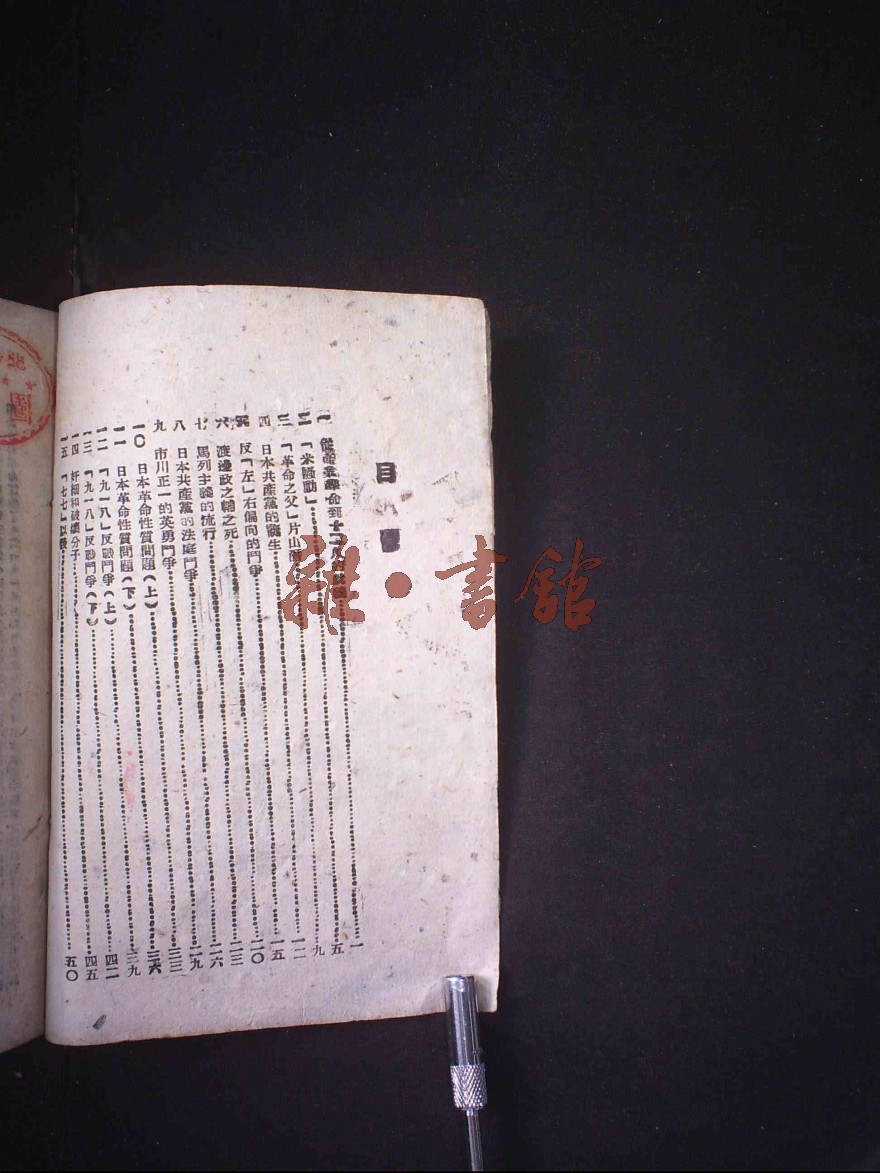 目
一 革命到十二八 一
二 「米騷動」 五
三 「革命之父」片山潛 九
四 日本共產黨的誕生 一二
五 反「左」右偏向的鬥爭 一五
六 渡邊政之輔之死 二〇
七 馬列主義的流行 二三
八 日本共產黨的法庭鬥爭 二六
九 市川正一的英勇鬥爭 二九
一〇 日本革命性質問題（上） 三三
一一 日本革命性質問題（下） 三六
一二 「九一八」反戰鬥爭（上） 三九
一三 「九一八」反戰鬥爭（下） 四二
一四 奸細和破壞分子 四五
一五 「七七」以後 五〇
雜·書館
圖